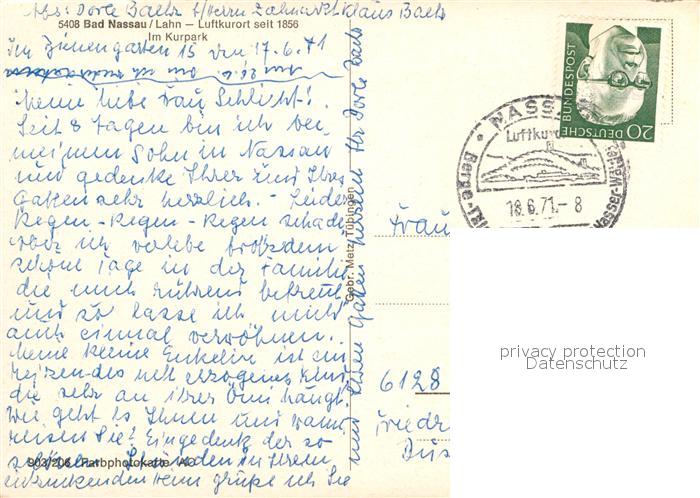 Abs: Dorle Baetz b/Herrn Zahnarzt Klaus Baetz
5408 Bad Nassau/Lahn — Luftkurort seit 1856
Im Kurpark
Im Bienengarten 15 den 17.6.71
Meine liebe Frau Schlicht!
Seit 8 Tagen bin ich bei
meinem Sohn in Nassau
und gedenke Ihrer und Ihres
Gatten sehr herzlich. - Leider
Regen - Regen - Regen schade
aber ich verlebe trotzdem
schöne Tage in der Familie
die mich rührend betreut
und so lasse ich mich
auch einmal verwöhnen.
Meine kleine Enkelin ist ein
reizendes nett erzogenes Kind
die sehr an ihrer Omi hängt.
Wie geht es Ihnen und wann
reisen Sie? Eingedenk der so
schönen Stunden in Ihrem
entzückenden Heim grüße ich Sie
903/206 Farbphotokarte AO
und Ihren Gatten herzlich Ihr Dorle Baetz
Gebr. Metz, Tübingen
DEUTSCHE BUNDESPOST
20
NASSAU
Luftkurort
Berge
Wasser-Wälder
18.6.71.-8
Frau
6128
privacy protection
Datenschutz